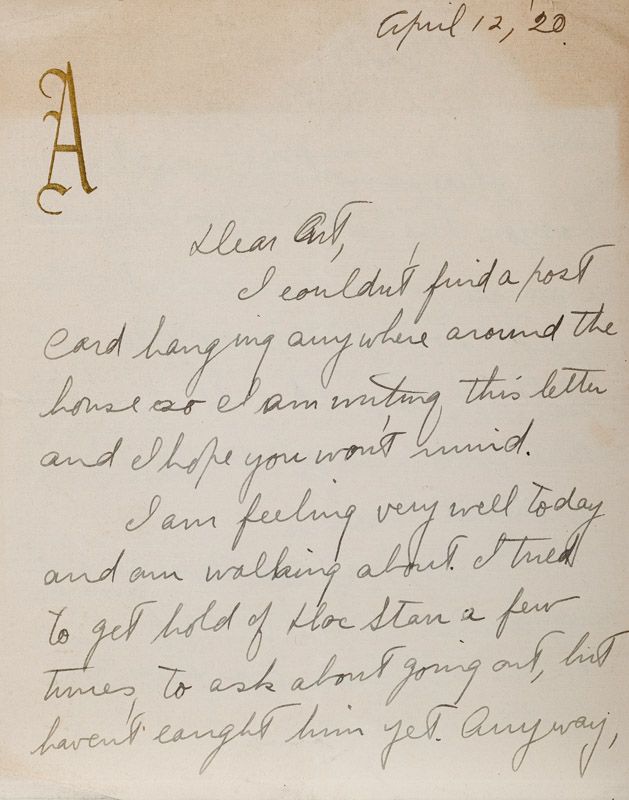 April 12, '20.
A
Dear Art,
I couldn't find a post
card hanging anywhere around the
house so I am writing this letter
and I hope you won't mind.
I am feeling very well today
and am walking about. I tried
to get hold of Doc Starr a few
times, to ask about going out, but
haven't caught him yet. Anyway,